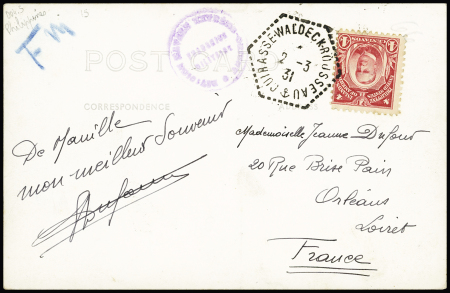 Philippines
FM
POST CARD
CORRESPONDENCE
CUIRASSÉ-WALDECK-ROUSSEAU
*
2-3
31
De Manille
mon meilleur souvenir
Dufour
Mademoiselle Jeanne Dufour
20 Rue Brise Pain
Orléans
Loiret
France